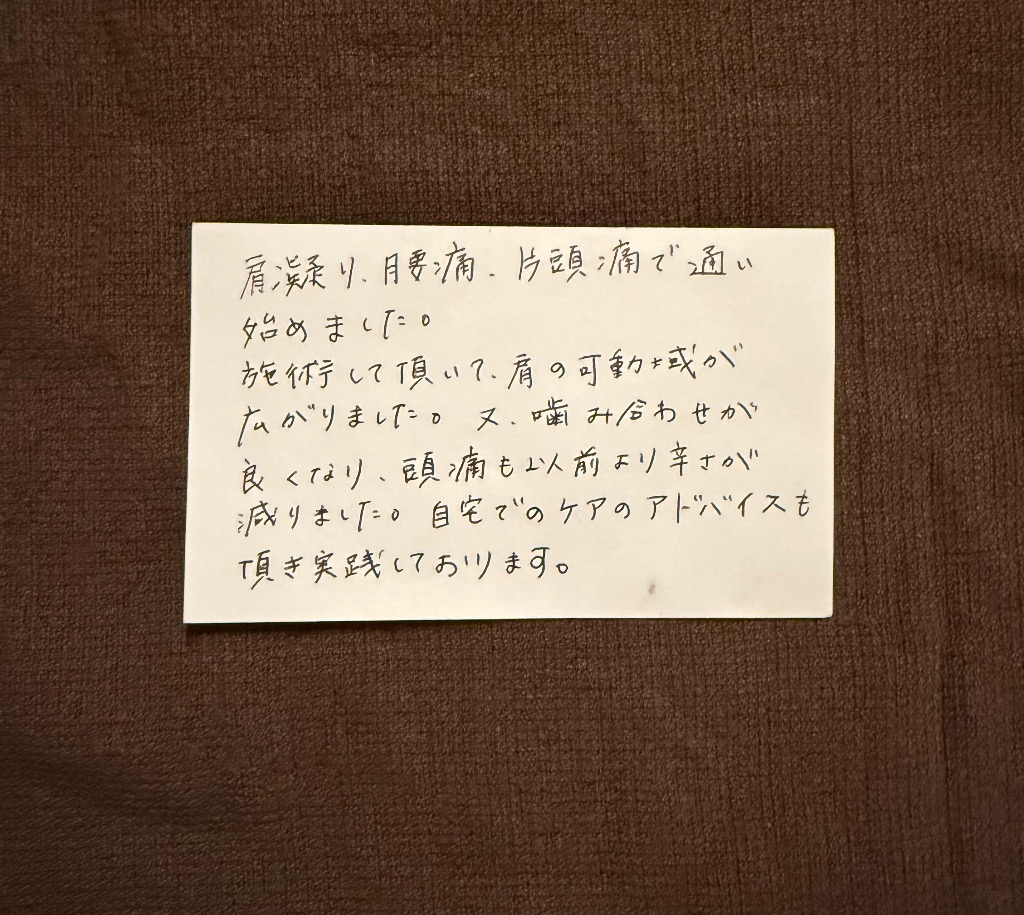 肩凝り、腰痛、片頭痛で通い
始めました。
施術して頂いて、肩の可動域が
広がりました。又、噛み合わせが
良くなり、頭痛も以前より辛さが
減りました。自宅でのケアのアドバイスも
頂き実践しております。